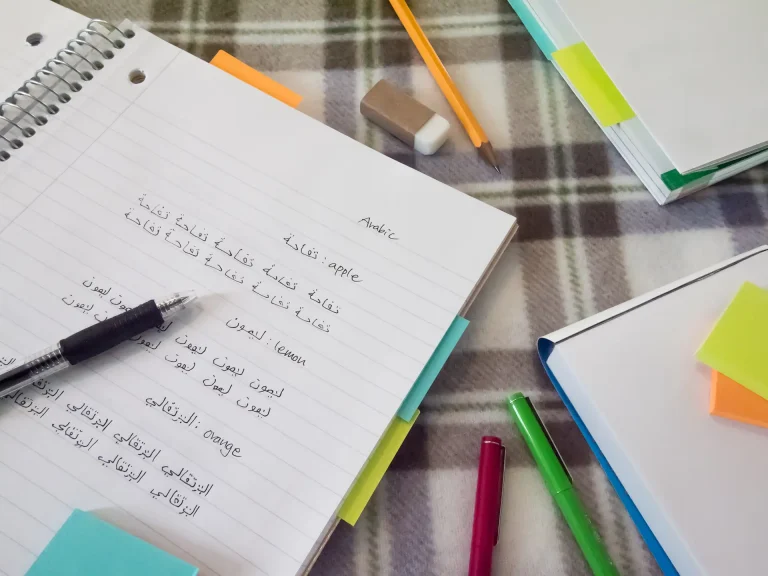 Arabic
تفاحة : apple
تفاحة تفاحة تفاحة تفاحة تفاحة
تفاحة تفاحة تفاحة تفاحة تفاحة
ليمون : lemon
ليمون ليمون ليمون ليمون ليمون
ليمون ليمون ليمون ليمون ليمون
البرتقالي : orange
البرتقالي البرتقالي البرتقالي
البرتقالي البرتقالي البرتقالي